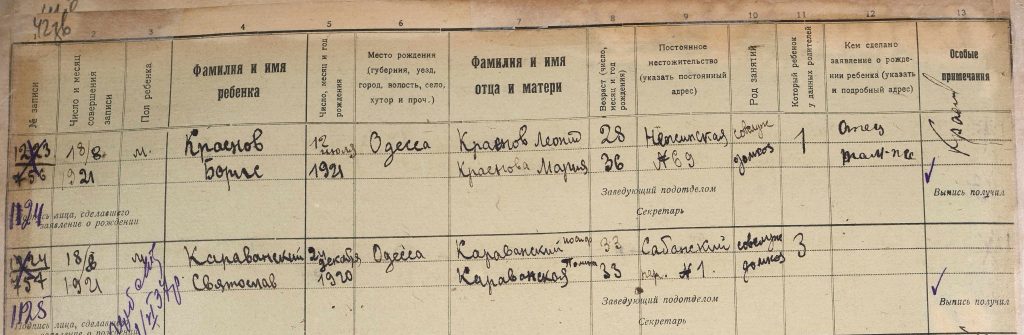 42 зв
1 2 3 4 5 6 7 8 9 10 11 12 13
№ записи
Число и месяц совершения записи
Пол ребенка
Фамилия и имя
ребенка
Число, месяц и год рождения
Место рождения
(губерния, уезд,
город, волость, село,
хутор и проч.)
Фамилия и имя
отца и матери
Возраст (число, месяц и год рождения)
Постоянное
местожительство
(указать постоянный
адрес)
Род занятий
Который ребенок у данных родителей
Кем сделано
заявление о рожде-
нии ребенка (указать
и подробный адрес)
Особые
примечания
1223 18/8 м. Краснов 12 июля Одесса Краснов Леонт 28 Нежинская совслуж 1 Отец
756 1921 Борис 1921 Краснова Мария 36 № 69 домхоз там-же
Заведующий подотделом
Выпись получил
1124
Подпись лица, сделавшего
заявление о рождении
Секретарь
1224 18/8 м Караванский 24 декабря Одесса Караванский Иосиф 33 Сабанский совслуж 3
757 1921 Святослав 1920 Караванская 33 пер. № 1. домхоз
Заведующий подотделом
Выпись получил
1125
Подпись лица, сделавшего
заявление о рождении
Секретарь